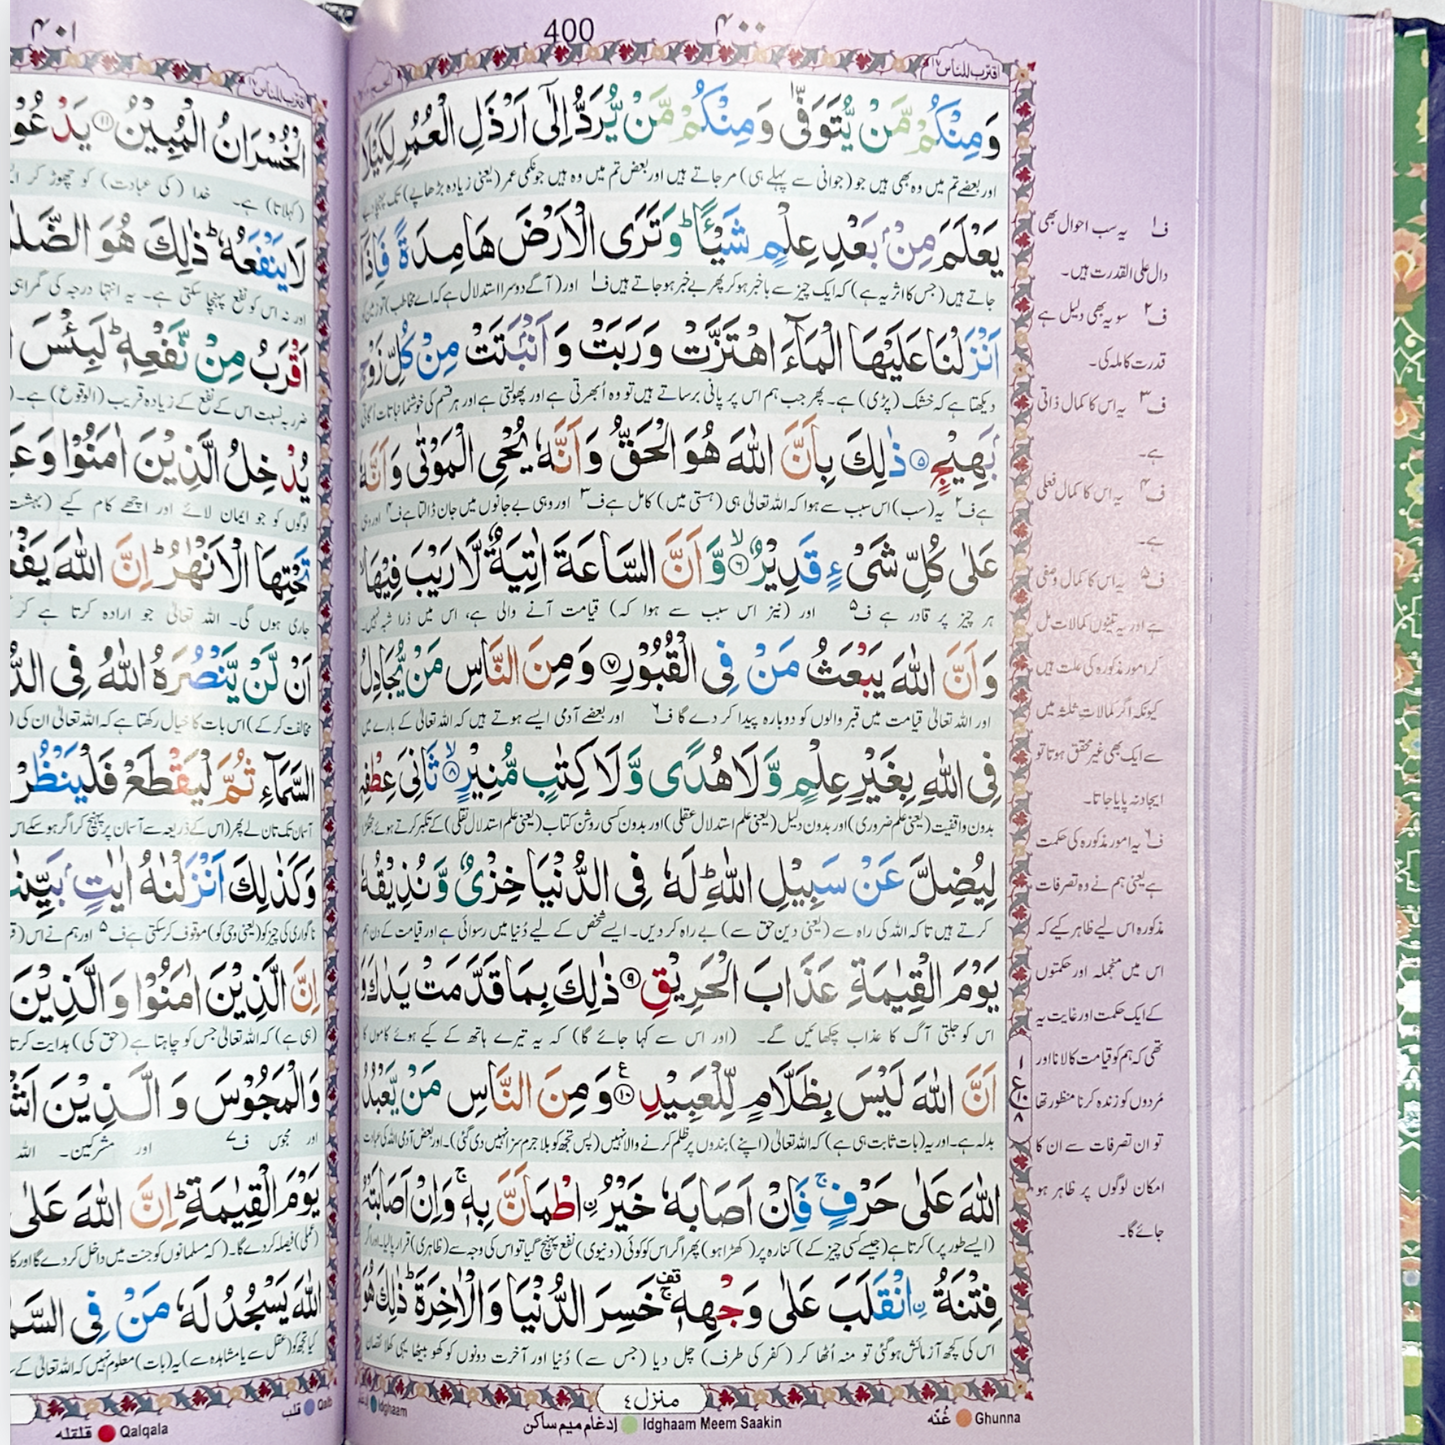 400
۴۰۰
اقترب للناس ۱۷
الحج ۲۲
وَمِنْكُمْ مَّنْ يُّتَوَفّٰى وَمِنْكُمْ مَّنْ يُّرَدُّ اِلٰٓى اَرْذَلِ الْعُمُرِ لِكَيْلَا
اور بعضے تم میں وہ بھی ہیں جو (جوانی سے پہلے ہی) مر جاتے ہیں اور بعض تم میں وہ ہیں جو نکمی عمر (یعنی زیادہ بڑھاپے) تک پہنچا دیے
يَعْلَمَ مِنْۢ بَعْدِ عِلْمٍ شَيْـًٔا ؕ وَتَرَى الْاَرْضَ هَامِدَةً فَاِذَآ
جاتے ہیں (جس کا اثر یہ ہے) کہ ایک چیز سے باخبر ہو کر پھر بے خبر ہو جاتے ہیں ف۱ اور (آگے دوسرا استدلال ہے کہ اے مخاطب) تو زمین کو
اَنْزَلْنَا عَلَيْهَا الْمَآءَ اهْتَزَّتْ وَرَبَتْ وَاَنْۢبَتَتْ مِنْ كُلِّ زَوْجٍۭ
دیکھتا ہے کہ خشک (پڑی) ہے۔ پھر جب ہم اس پر پانی برساتے ہیں تو وہ اُبھرتی ہے اور پھولتی ہے اور ہر قسم کی خوشنما نباتات اُگاتی
بَهِيْجٍ ۵ ذٰلِكَ بِاَنَّ اللّٰهَ هُوَ الْحَقُّ وَاَنَّهٗ يُحْيِ الْمَوْتٰى وَاَنَّهٗ
ہے ف۲ یہ (سب) اس سبب سے ہوا کہ اللہ تعالیٰ ہی (ہستی میں) کامل ہے ف۳ اور وہی بے جانوں میں جان ڈالتا ہے ف۴ اور وہی
عَلٰى كُلِّ شَيْءٍ قَدِيْرٌ ۶ وَّاَنَّ السَّاعَةَ اٰتِيَةٌ لَّا رَيْبَ فِيْهَا
ہر چیز پر قادر ہے ف۵ اور (نیز اس سبب سے ہوا کہ) قیامت آنے والی ہے، اس میں ذرا شبہ نہیں۔
وَاَنَّ اللّٰهَ يَبْعَثُ مَنْ فِي الْقُبُوْرِ ۷ وَمِنَ النَّاسِ مَنْ يُّجَادِلُ
اور اللہ تعالیٰ قیامت میں قبر والوں کو دوبارہ پیدا کر دے گا ف۶ اور بعضے آدمی ایسے ہوتے ہیں کہ اللہ تعالیٰ کے بارے میں
فِي اللّٰهِ بِغَيْرِ عِلْمٍ وَّلَا هُدًى وَّلَا كِتٰبٍ مُّنِيْرٍ ۸ ثَانِيَ عِطْفِهٖ
بدون واقفیت (یعنی علم ضروری) اور بدون دلیل (یعنی علم استدلال عقلی) اور بدون کسی روشن کتاب (یعنی علم استدلال نقلی) کے تکبر کرتے ہوئے جھگڑا
لِيُضِلَّ عَنْ سَبِيْلِ اللّٰهِ ؕ لَهٗ فِي الدُّنْيَا خِزْيٌ وَّنُذِيْقُهٗ
کرتے ہیں تا کہ اللہ کی راہ سے (یعنی دین حق سے) بے راہ کر دیں۔ ایسے شخص کے لیے دُنیا میں رسوائی ہے اور قیامت کے دن ہم
يَوْمَ الْقِيٰمَةِ عَذَابَ الْحَرِيْقِ ۹ ذٰلِكَ بِمَا قَدَّمَتْ يَدٰكَ وَ
اس کو جلتی آگ کا عذاب چکھائیں گے۔ (اور اس سے کہا جائے گا) کہ یہ تیرے ہاتھ کے کیے ہوئے کاموں کا
اَنَّ اللّٰهَ لَيْسَ بِظَلَّامٍ لِّلْعَبِيْدِ ۱۰ وَمِنَ النَّاسِ مَنْ يَّعْبُدُ
بدلہ ہے۔ اور یہ (بات ثابت ہی ہے) کہ اللہ تعالیٰ (اپنے) بندوں پر ظلم کرنے والا نہیں (پس تجھ کو بلا جرم سزا نہیں دی گئی)۔ اور بعض آدمی اللہ کی عبادت
اللّٰهَ عَلٰى حَرْفٍ ۚ فَاِنْ اَصَابَهٗ خَيْرُ اۨطْمَاَنَّ بِهٖ ۚ وَاِنْ اَصَابَتْهُ
(ایسے طور پر) کرتا ہے (جیسے کسی چیز کے) کنارہ پر (کھڑا ہو) پھر اگر اس کو کوئی (دنیوی) نفع پہنچ گیا تو اس کی وجہ سے (ظاہری) قرار پا لیا۔ اور اگر
فِتْنَةُ اۨنْقَلَبَ عَلٰى وَجْهِهٖ ۚ خَسِرَ الدُّنْيَا وَالْاٰخِرَةَ ؕ ذٰلِكَ هُوَ
اس کی کچھ آزمائش ہو گئی تو منہ اُٹھا کر (کفر کی طرف) چل دیا (جس سے) دُنیا اور آخرت دونوں کو کھو بیٹھا یہی کھلا نقصان
منزل ۴
ف۱ یہ سب احوال بھی
دال علی القدرت ہیں۔
ف۲ سو یہ بھی دلیل ہے
قدرت کاملہ کی۔
ف۳ یہ اس کا کمال ذاتی
ہے۔
ف۴ یہ اس کا کمال فعلی
ہے۔
ف۵ یہ اس کا کمال وصفی
ہے اور یہ تینوں کمالات مل
کر امور مذکورہ کی علت ہیں
کیونکہ اگر کمالات ثلثہ میں
سے ایک بھی غیر محقق ہوتا تو
ایجاد نہ پایا جاتا۔
ف۶ یہ امور مذکورہ کی حکمت
ہے یعنی ہم نے وہ تصرفات
مذکورہ اس لیے ظاہر کیے کہ
اس میں منجملہ اور حکمتوں
کے ایک حکمت اور غایت یہ
تھی کہ ہم کو قیامت کا لانا اور
مُردوں کو زندہ کرنا منظور تھا
تو ان تصرفات سے ان کا
امکان لوگوں پر ظاہر ہو
جائے گا۔
غُنَّه Ghunna
إدغام ميم ساكن Idghaam Meem Saakin
Idghaam
۴۰۱
اقترب للناس ۱۷
الْخُسْرَانُ الْمُبِيْنُ ۱۱ يَدْعُوْا
(کہلاتا) ہے۔ خدا (کی عبادت) کو چھوڑ کر
لَا يَنْفَعُهٗ ؕ ذٰلِكَ هُوَ الضَّلٰلُ
اور نہ اس کو نفع پہنچا سکتی ہے۔ یہ انتہا درجہ کی گمراہی
اَقْرَبُ مِنْ نَّفْعِهٖ ؕ لَبِئْسَ
ضرر بہ نسبت اس کے نفع کے زیادہ قریب (الوقوع) ہے۔
يُدْخِلُ الَّذِيْنَ اٰمَنُوْا وَعَ
لوگوں کو جو ایمان لائے اور اچھے کام کیے (بہشت
تَحْتِهَا الْاَنْهٰرُ ؕ اِنَّ اللّٰهَ يَفْعَ
جاری ہوں گی۔ اللہ تعالیٰ جو ارادہ کرتا ہے کر
اَنْ لَّنْ يَّنْصُرَهُ اللّٰهُ فِي الدُّ
مخالفت کر کے) اس بات کا خیال رکھتا ہے کہ اللہ تعالیٰ ان کی
السَّمَآءِ ثُمَّ لْيَقْطَعْ فَلْيَنْظُرْ
آسمان تک تان لے پھر (اس کے ذریعہ سے آسمان پر پہنچ کر اگر ہو سکے اس
وَكَذٰلِكَ اَنْزَلْنٰهُ اٰيٰتٍۭ بَيِّنٰتٍ
ناگواری کی چیز کو (یعنی وحی کو) موقوف کر سکتی ہے ف۵ اور ہم نے اس
اِنَّ الَّذِيْنَ اٰمَنُوْا وَالَّذِيْنَ
(ہی ہے) کہ اللہ تعالیٰ جس کو چاہتا ہے (حق کی) ہدایت کرتا
وَالْمَجُوْسَ وَالَّذِيْنَ اَشْ
اور مجوس ف۷ اور مشرکین۔ اللہ
يَوْمَ الْقِيٰمَةِ ؕ اِنَّ اللّٰهَ عَلٰى
(عملی) فیصلہ کر دے گا۔ (کہ مسلمانوں کو جنت میں داخل کر دے گا اور کا
اللّٰهَ يَسْجُدُ لَهٗ مَنْ فِي السَّم
کیا تجھ کو (عقل سے یا مشاہدہ سے) یہ (بات) معلوم نہیں کہ اللہ تعالیٰ کے سا
قلب Qalb
قلقله Qalqala